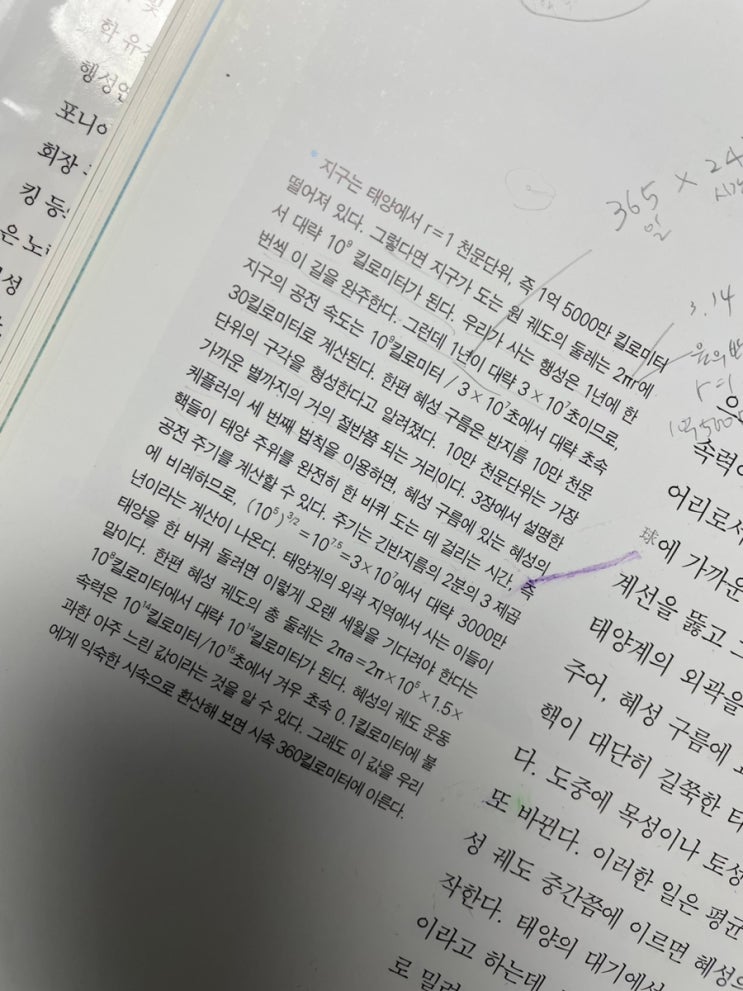 화 유
행성연
포니아
회장
킹 등
은 노
성
* 지구는 태양에서 r = 1 천문단위, 즉 1억 5000만 킬로미터
떨어져 있다. 그렇다면 지구가 도는 원 궤도의 둘레는 2πr에
서 대략 10⁹ 킬로미터가 된다. 우리가 사는 행성은 1년에 한
번씩 이 길을 완주한다. 그런데 1년이 대략 3 × 10⁷초이므로,
지구의 공전 속도는 10⁹킬로미터 / 3 × 10⁷초에서 대략 초속
30킬로미터로 계산된다. 한편 혜성 구름은 반지름 10만 천문
단위의 구각을 형성한다고 알려졌다. 10만 천문단위는 가장
가까운 별까지의 거의 절반쯤 되는 거리이다. 3장에서 설명한
케플러의 세 번째 법칙을 이용하면, 혜성 구름에 있는 혜성의
핵들이 태양 주위를 완전히 한 바퀴 도는 데 걸리는 시간, 즉
공전 주기를 계산할 수 있다. 주기는 긴반지름의 2분의 3 제곱
에 비례하므로, (10⁵)^3/2 = 10^7.5 = 3 × 10⁷에서 대략 3000만
년이라는 계산이 나온다. 태양계의 외곽 지역에서 사는 이들이
태양을 한 바퀴 돌려면 이렇게 오랜 세월을 기다려야 한다는
말이다. 한편 혜성 궤도의 총 둘레는 2πa = 2π × 10⁵ × 1.5 ×
10⁸킬로미터에서 대략 10¹⁴킬로미터가 된다. 혜성의 궤도 운동
속력은 10¹⁴킬로미터/10¹⁵초에서 겨우 초속 0.1킬로미터에 불
과한 아주 느린 값이라는 것을 알 수 있다. 그래도 이 값을 우리
에게 익숙한 시속으로 환산해 보면 시속 360킬로미터에 이른다.
365 × 24
일 시간
3.14
r=1
1억 5000
속력이
어리로서
球에 가까운
계선을 뚫고
태양계의 외곽을
주어, 혜성 구름에
핵이 대단히 길쭉한 타
다. 도중에 목성이나 토성
또 바뀐다. 이러한 일은 평균
성 궤도 중간쯤에 이르면 혜성의
작한다. 태양의 대기에서
이라고 하는데
로 밀려